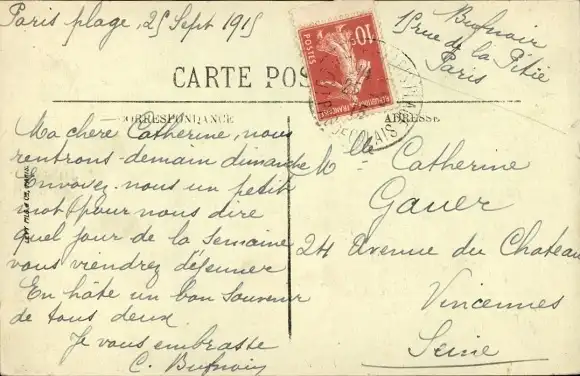 Paris plage, 25 Sept 1915
Bufnoir
15 rue de la Pitié
Paris
CARTE POS
10c
POSTES
REPUBLIQUE FRANÇAISE
CORRESPONDANCE
ADRESSE
Ma chère Catherine, nous
rentrons demain dimanche
Envoyez-nous un petit
mot pour nous dire
quel jour de la semaine
vous viendrez déjeuner
En hâte un bon souvenir
de tous deux.
Je vous embrasse
C. Bufnoir
Mlle Catherine
Gauer
24 Avenue du Chateau
Vincennes
Seine